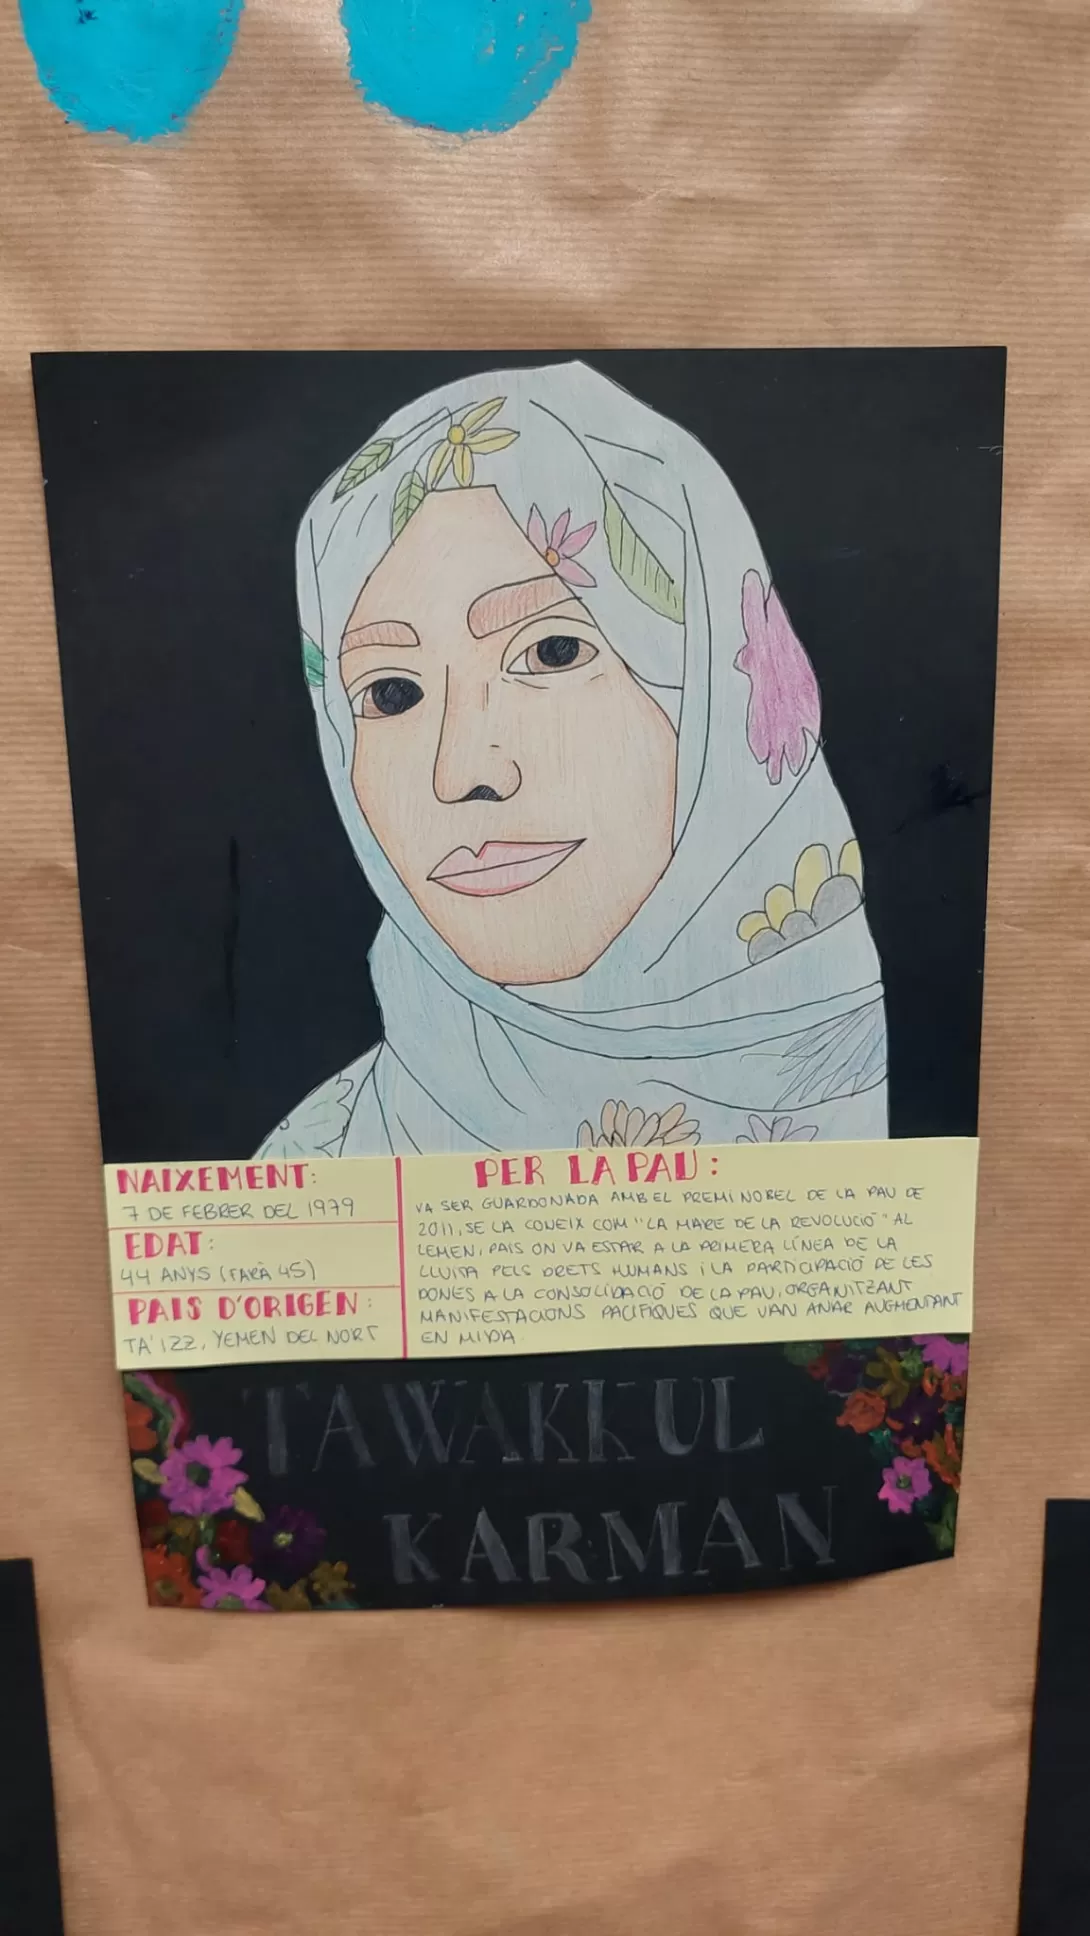 NAIXEMENT:
7 DE FEBRER DEL 1979
EDAT:
44 ANYS (FARÀ 45)
PAIS D'ORIGEN:
TA'IZZ, YEMEN DEL NORT
PER LA PAU:
VA SER GUARDONADA AMB EL PREMI NOBEL DE LA PAU DE
2011, SE LA CONEIX COM "LA MARE DE LA REVOLUCIÓ" AL
IEMEN, PAIS ON VA ESTAR A LA PRIMERA LÍNEA DE LA
LLUITA PELS DRETS HUMANS I LA PARTICIPACIÓ DE LES
DONES A LA CONSOLIDACIÓ DE LA PAU, ORGANITZANT
MANIFESTACIONS PACIFIQUES QUE VAN ANAR AUGMENTANT
EN MIDA.
TAWAKKUL
KARMAN